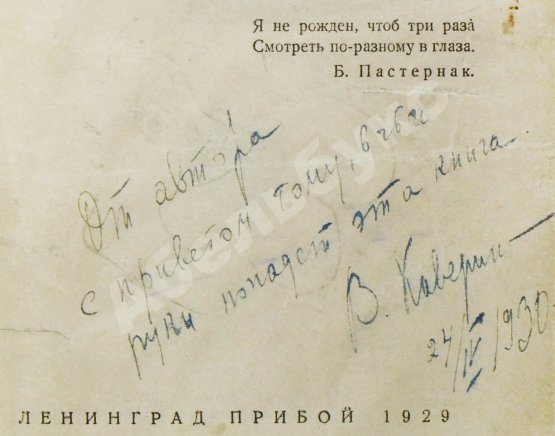 Я не рожден, чтоб три раза
Смотреть по-разному в глаза.
Б. Пастернак.
От автора
с приветом тому, в чьи
руки попадет эта книга
В. Каверин
24/IV 1930
АДЕЛЬБУКС
ЛЕНИНГРАД ПРИБОЙ 1929